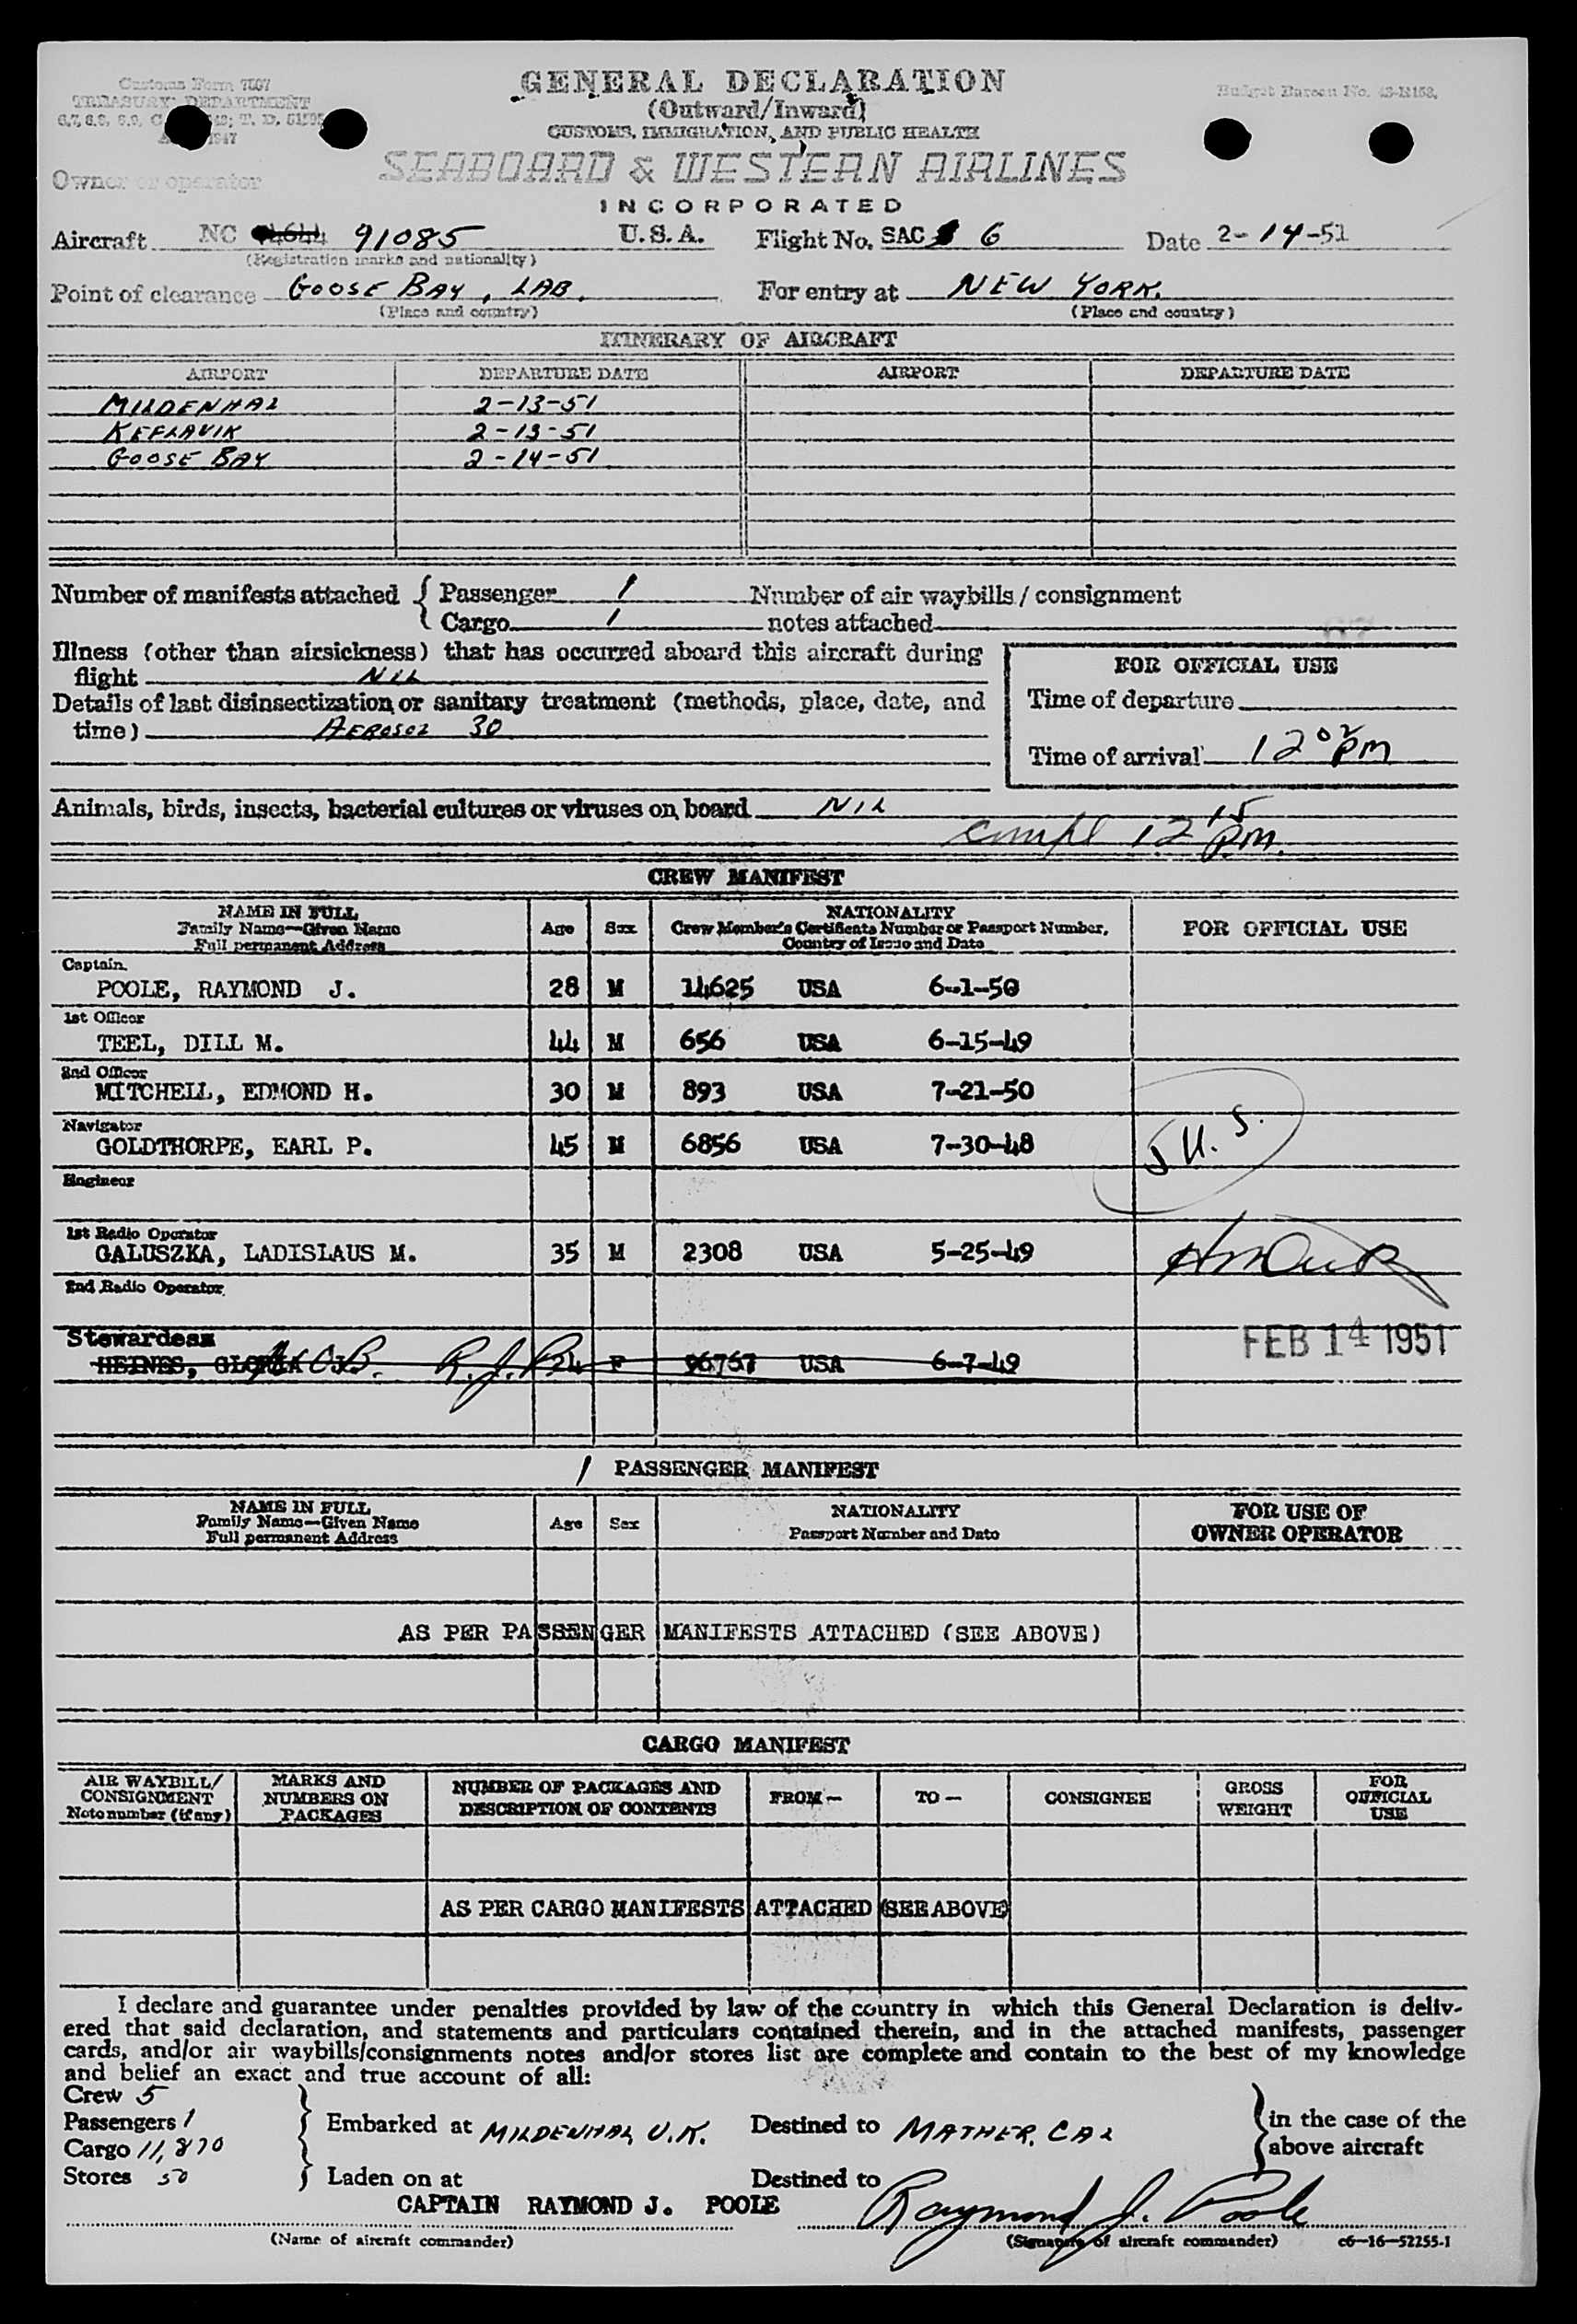 Customs Form 7507
TREASURY DEPARTMENT
GENERAL DECLARATION
(Outward/Inward)
CUSTOMS, IMMIGRATION, AND PUBLIC HEALTH
Budget Bureau No.
SEABOARD & WESTERN AIRLINES
INCORPORATED
Owner or operator
Aircraft NC 91085 U.S.A. Flight No. SAC 6 Date 2-14-51
(Registration marks and nationality)
Point of clearance GOOSE BAY, LAB. For entry at NEW YORK.
(Place and country) (Place and country)
ITINERARY OF AIRCRAFT
AIRPORT DEPARTURE DATE AIRPORT DEPARTURE DATE
MILDENHAL 2-13-51
KEFLAVIK 2-13-51
GOOSE BAY 2-14-51
Number of manifests attached { Passenger 1 Number of air waybills / consignment
Cargo 1 notes attached
Illness (other than airsickness) that has occurred aboard this aircraft during
flight NIL
Details of last disinsectization or sanitary treatment (methods, place, date, and
time) AEROSOL 30
FOR OFFICIAL USE
Time of departure
Time of arrival 12 02 pm
Animals, birds, insects, bacterial cultures or viruses on board NIL
compl 12 15 pm.
CREW MANIFEST
NAME IN FULL
Family Name—Given Name
Full permanent Address
Age Sex
NATIONALITY
Crew Member's Certificate Number or Passport Number,
Country of Issue and Date
FOR OFFICIAL USE
Captain
POOLE, RAYMOND J. 28 M 14625 USA 6-1-50
1st Officer
TEEL, DILL M. 44 M 656 USA 6-15-49
2nd Officer
MITCHELL, EDMOND H. 30 M 893 USA 7-21-50
Navigator
GOLDTHORPE, EARL P. 45 M 6856 USA 7-30-48
Engineer
1st Radio Operator
GALUSZKA, LADISLAUS M. 35 M 2308 USA 5-25-49
2nd Radio Operator
Stewardess
HEINES, GLORIA 24 F 96767 USA 6-7-49
R.J.P.
FEB 14 1951
1 PASSENGER MANIFEST
NAME IN FULL
Family Name—Given Name
Full permanent Address
Age Sex
NATIONALITY
Passport Number and Date
FOR USE OF
OWNER OPERATOR
AS PER PASSENGER MANIFESTS ATTACHED (SEE ABOVE)
CARGO MANIFEST
AIR WAYBILL/
CONSIGNMENT
Note number (if any)
MARKS AND
NUMBERS ON
PACKAGES
NUMBER OF PACKAGES AND
DESCRIPTION OF CONTENTS
FROM— TO— CONSIGNEE
GROSS
WEIGHT
FOR
OFFICIAL
USE
AS PER CARGO MANIFESTS ATTACHED (SEE ABOVE)
I declare and guarantee under penalties provided by law of the country in which this General Declaration is deliv-
ered that said declaration, and statements and particulars contained therein, and in the attached manifests, passenger
cards, and/or air waybills/consignments notes and/or stores list are complete and contain to the best of my knowledge
and belief an exact and true account of all:
Crew 5
Passengers 1 Embarked at MILDENHAL U.K. Destined to MATHER, CAL in the case of the
Cargo 11,870 above aircraft
Stores 50 Laden on at Destined to
CAPTAIN RAYMOND J. POOLE Raymond J. Poole
(Name of aircraft commander) (Signature of aircraft commander) c6—16—52255-1